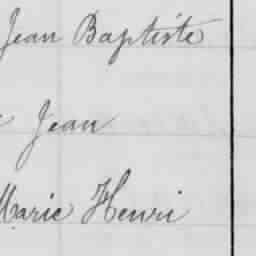 Jean Baptiste
Jean
Marie Henri